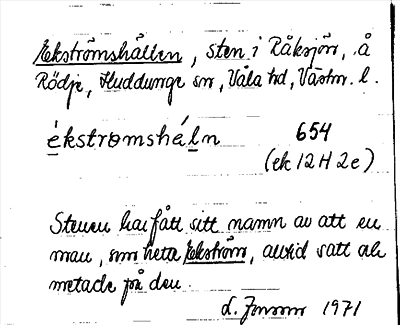 Ekströmshällen, sten i Råksjön, å
Rödje, Huddunge sn, Våla hd, Västm. l.
ékstromshéln 654
(ek 12 H 2e)
Stenen har fått sitt namn av att en
man, som hette Ekström, alltid satt och
metade på den.
1971